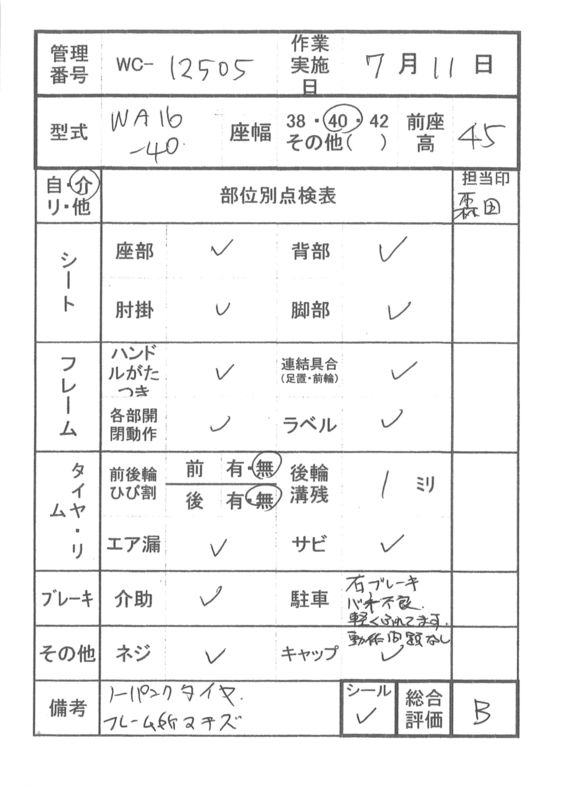 管理番号 WC- 12505 作業実施日 7月11日
型式 WA16-40 座幅 38・40・42 その他( ) 前座高 45
自・介 リ・他 部位別点検表 担当印 森田
シート 座部 ✓ 背部 ✓
肘掛 ✓ 脚部 ✓
フレーム ハンドルがたつき ✓ 連結具合(足置・前輪) ✓
各部開閉動作 ✓ ラベル ✓
タイヤ・リム 前後輪ひび割 前 有・無 後輪溝残 1 ミリ
後 有・無
エア漏 ✓ サビ ✓
ブレーキ 介助 ✓ 駐車 右ブレーキ
バネ不良.
軽くふれてます.
動作問題なし
その他 ネジ ✓ キャップ ✓
備考 ノーパンクタイヤ. シール ✓ 総合評価 B
フレーム所々キズ